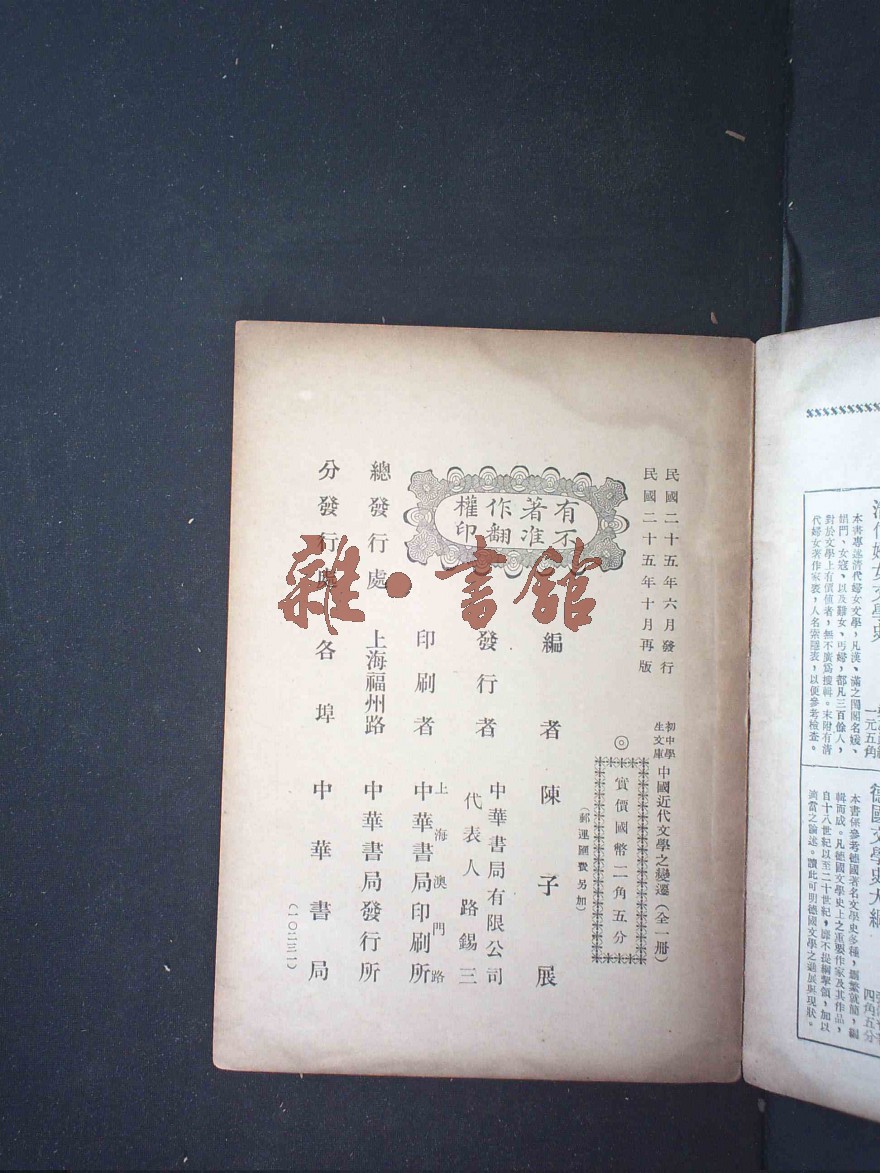 民國二十五年六月發行
民國二十五年十月再版
初中學
生文庫
中國近代文學之變遷（全一冊）
◎
實價國幣二角五分
（郵運匯費另加）
有著作權
不准翻印
編者 陳子展
發行者 中華書局有限公司
代表人 路錫三
印刷者 上海澳門路
中華書局印刷所
總發行處 上海福州路 中華書局發行所
分發行處 各埠 中華書局
（一〇二三一）
雜·書館
婦女文學史
一元五角
本書專述清代婦女文學，凡漢、滿之閨閣名媛、
娼門、女寇、以及難女、丐婦，都凡三百餘人，
對於文學上有價值者，無不廣為搜輯。末附有清
代婦女著作家表，人名索隱表，以便參考檢查。
德國文學史大綱
四角五分
本書係參考德國著名文學史多種，刪繁就簡，編
輯而成。凡德國文學史上之重要作家及其作品，
自十八世紀以至二十世紀，靡不提綱挈領，加以
適當之論述。讀此可明德國文學之進展與現狀。